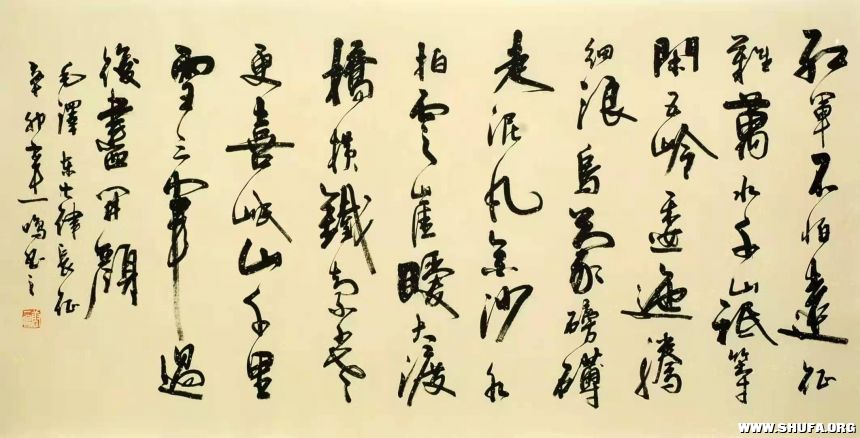 紅軍不怕遠征
難萬水千山祗等
閑五岭逶迤騰
細浪烏蒙磅礴
走泥丸金沙水
拍雲崖暖大渡
橋橫鐵索寒
更喜岷山千里
雪三軍過
後盡開顏
毛澤東七律長征
辛卯一鳴書之
WWW.SHUFA.ORG